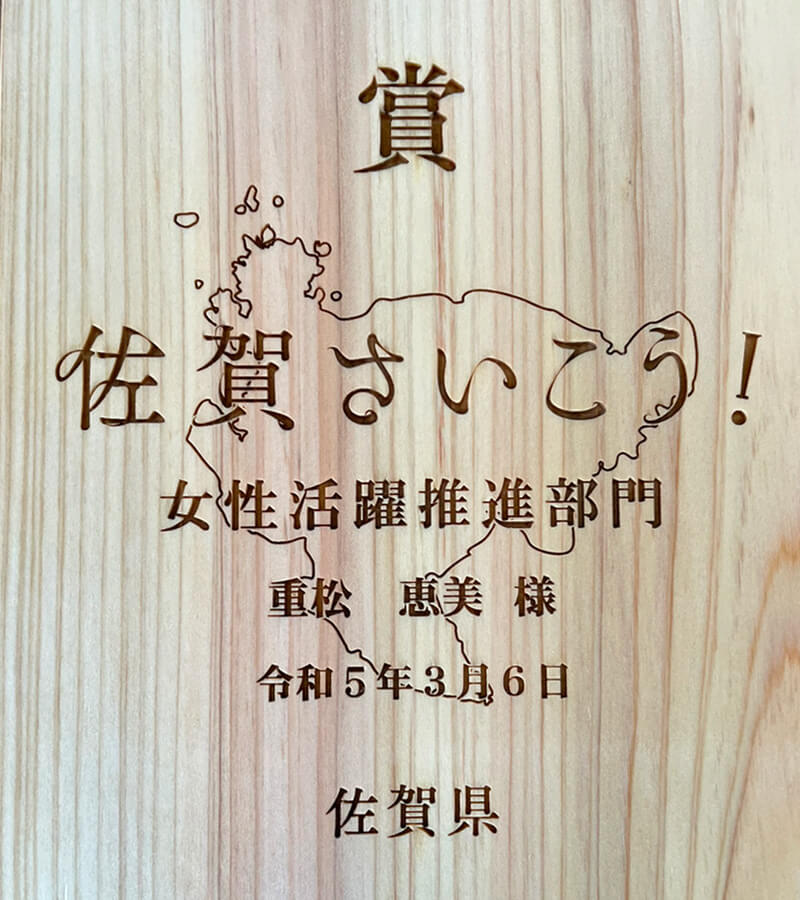 賞
佐賀さいこう!
女性活躍推進部門
重松 恵美 様
令和5年3月6日
佐賀県